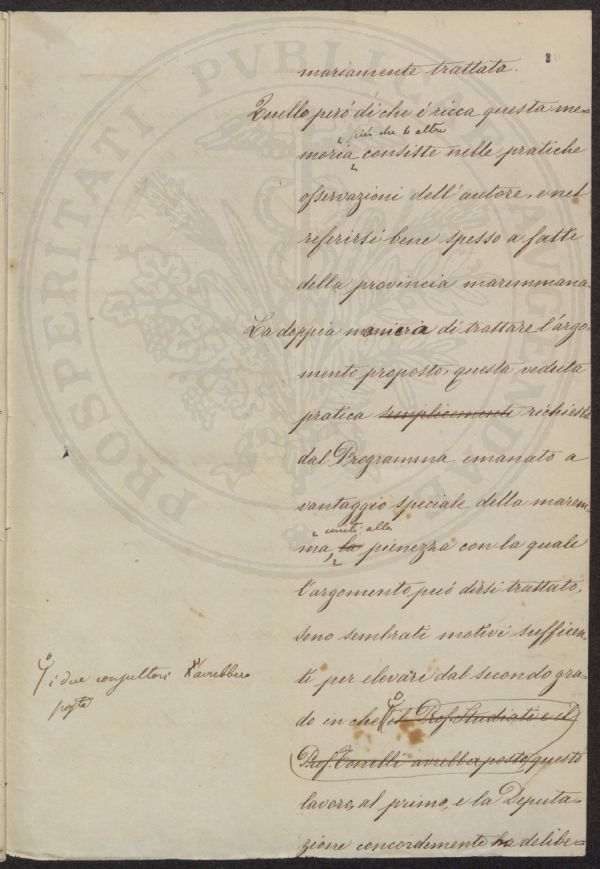 2
mariamente trattata.
Quello però di che è ricca questa me=
più che le altre
moria consiste nelle pratiche
osservazioni dell'autore, e nel
referirsi bene spesso a fatti
della provincia maremmana.
La doppia maniera di trattare l'argo=
mento proposto, questa veduta
pratica semplicemente richiesta
dal Programma emanato a
vantaggio speciale della marem=
uniti alla
ma, la pienezza con la quale
l'argomento può dirsi trattato,
sono sembrati motivi sufficien=
ti per elevare dal secondo gra=
do in che il Prof. Studiati e il
Prof. Tonelli avrebber posto questo
lavoro, al primo, e la Deputa=
zione concordemente ha delibe=
i due consultori l'avrebbero
posto
PROSPERITATI PVBLICAE AVGENDAE